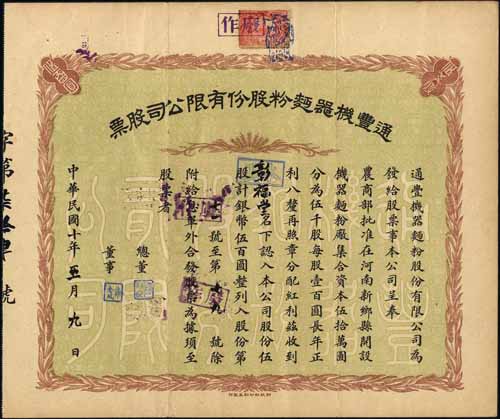 作廢
通豐機器麵粉股份有限公司股票
通豐機器麵粉股份有限公司為
發給股票事本公司呈奉
農商部批准在河南新鄉縣開設
機器麵粉廠集合資本伍拾萬圓
分為伍千股每股壹百圓長年正
利八釐再照章分配紅利茲收到
名下認入本公司股份伍
股計銀幣伍百圓整列入股份第
號至第 號除
附給息單外合發股票為據須至
股票者
總董
董事
中華民國十年五月九日
字第 號